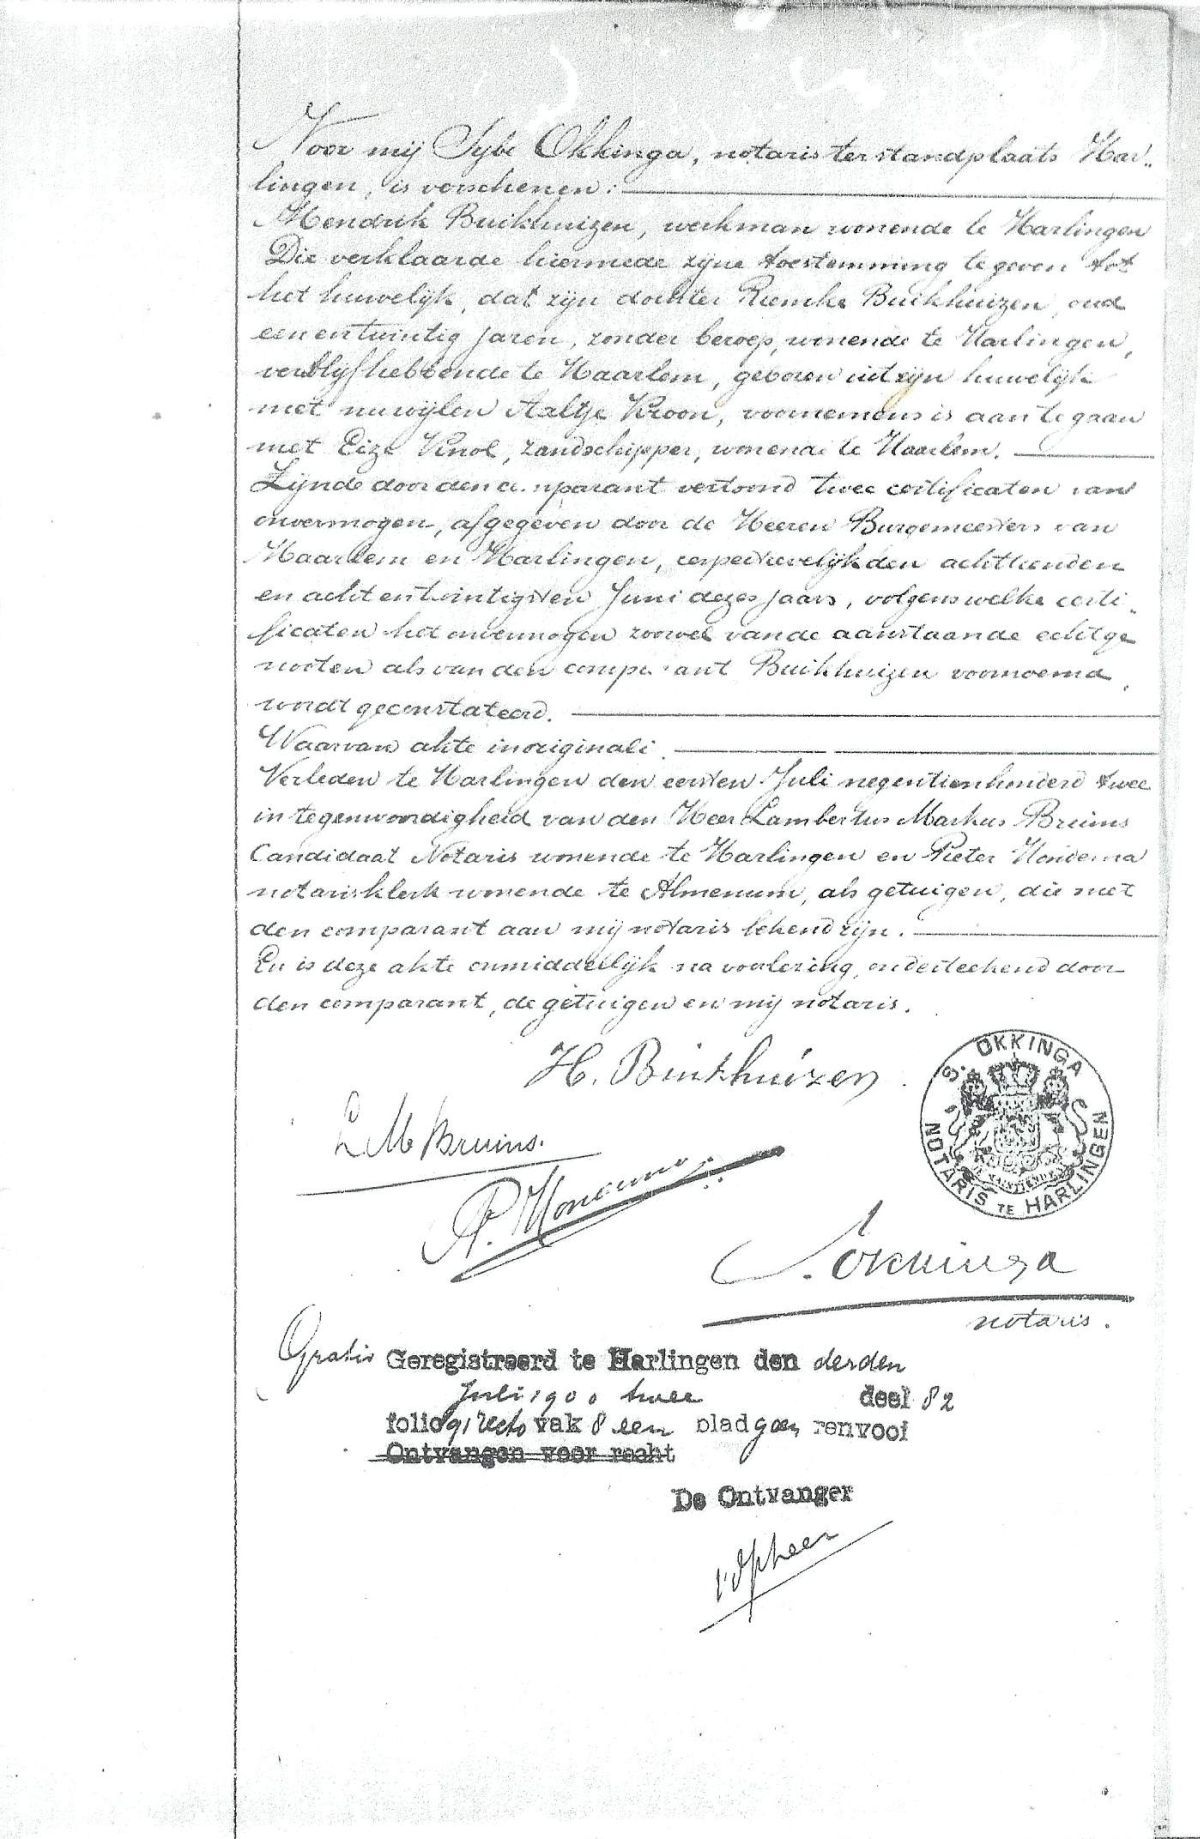 Voor mij Sybe Okkinga, notaris ter standplaats Har-
lingen, is verschenen:
Hendrik Buikhuizen, werkman wonende te Harlingen
Die verklaarde hiermede zijne toestemming te geven tot
het huwelijk, dat zijn dochter Riemke Buikhuizen, oud
een en twintig jaren, zonder beroep, wonende te Harlingen,
verblijf hebbende te Haarlem, geboren uit zijn huwelijk
met nu wijlen Aaltje Kroon, voornemens is aan te gaan
met Eize Knol, zandschipper, wonende te Haarlem.
Zijnde door den comparant vertoond twee certificaten van
onvermogen, afgegeven door de Heeren Burgemeesters van
Haarlem en Harlingen, respectievelijk den achttienden
en acht en twintigsten Juni dezes jaars, volgens welke certi-
ficaten het onvermogen zoowel van de aanstaande echtge
nooten als van den comparant Buikhuizen voornoemd,
wordt geconstateerd.
Waarvan akte in originali.
Verleden te Harlingen den eersten Juli negentienhonderd twee
in tegenwoordigheid van den Heer Lambertus Markus Bruins
Candidaat Notaris wonende te Harlingen en Pieter
notarisklerk wonende te Almenum, als getuigen, die met
den comparant aan mij notaris bekend zijn.
En is deze akte onmiddellijk na voorlezing, onderteekend door
den comparant, de getuigen en mij notaris.
H. Buikhuizen
S. OKKINGA
NOTARIS TE HARLINGEN
JE MAINTIENDRAI
L M Bruins.
P.
S. Okkinga
notaris.
Gratis Geregistreerd te Harlingen den derden
Juli 1900 twee deel 82
folio 91 recto vak 8 een blad geen renvooi
Ontvangen voor recht
De Ontvanger